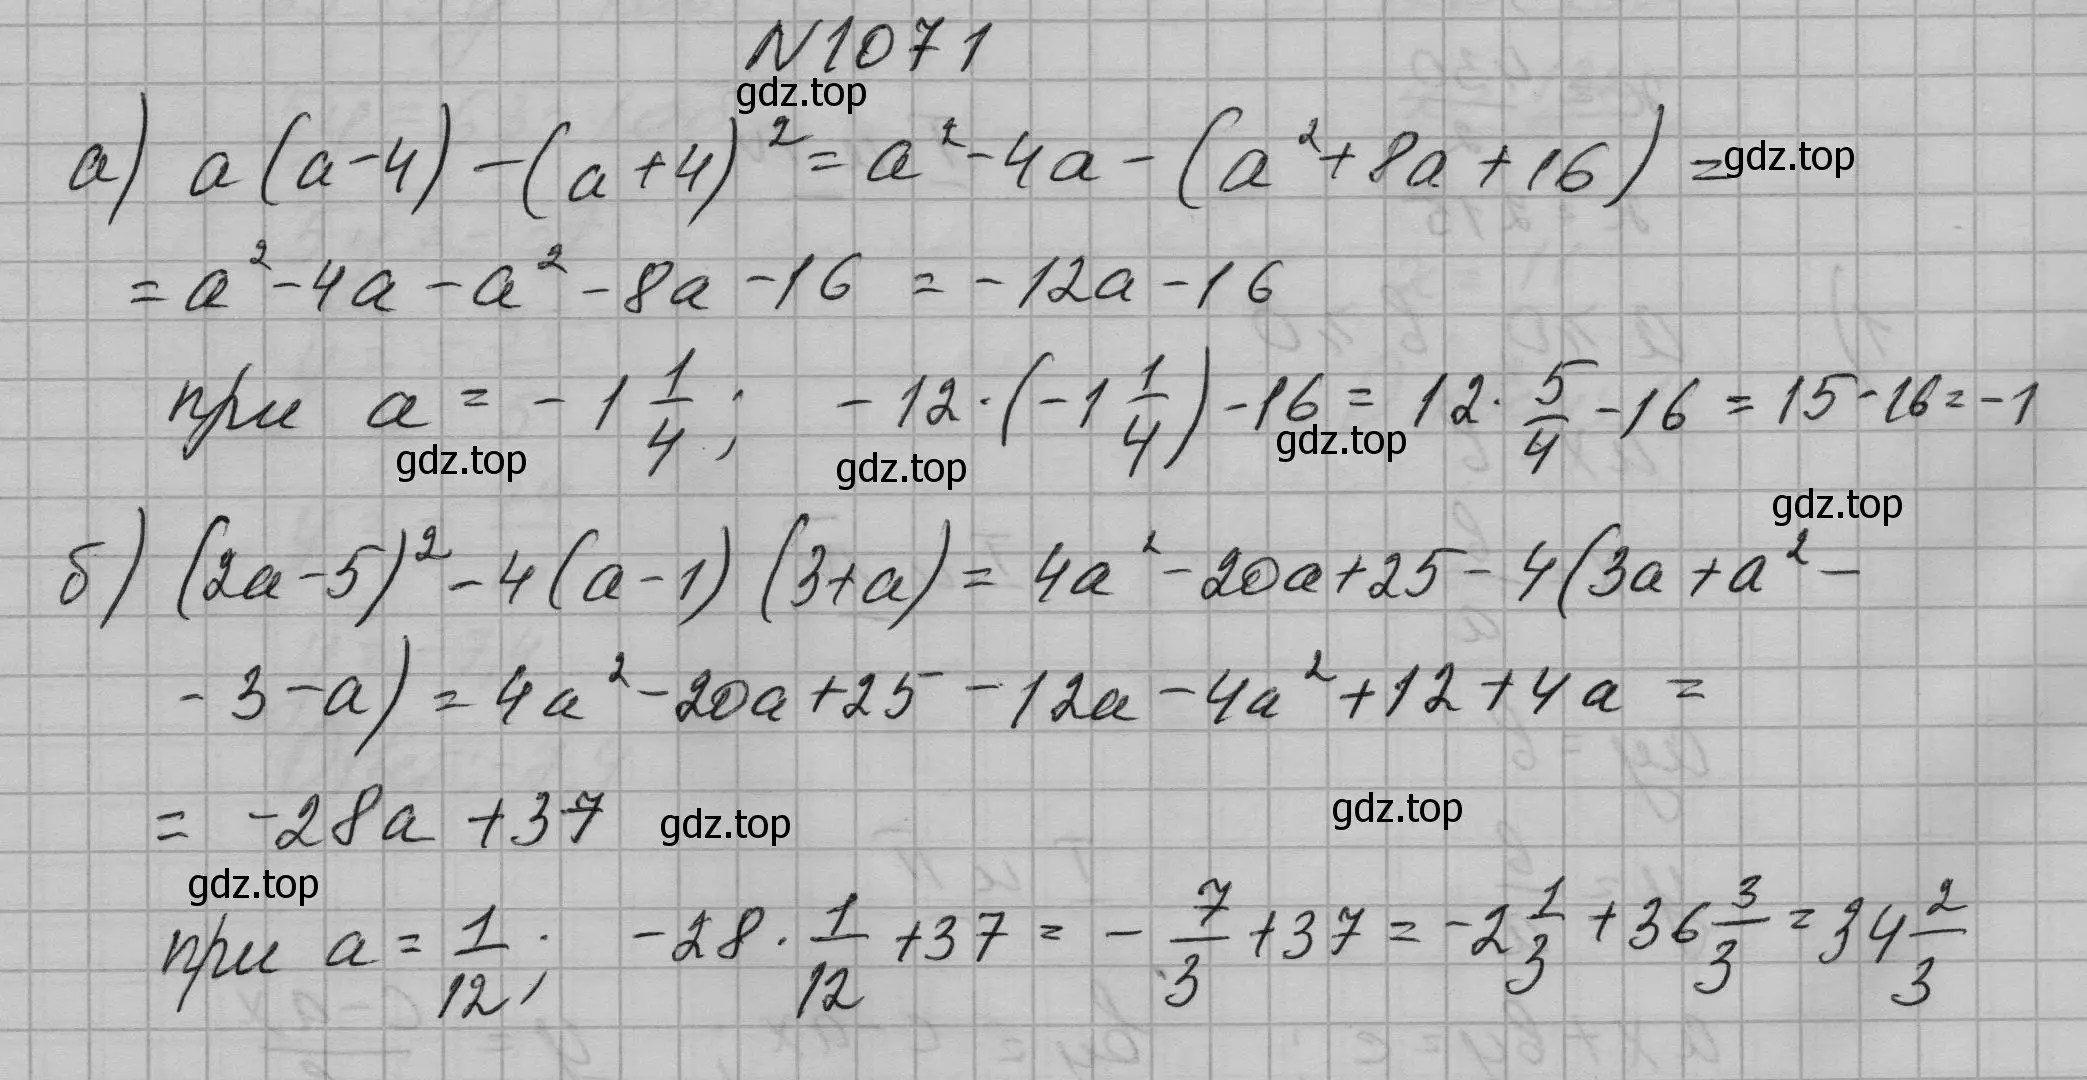 N1071
gdz.top
а) a(a-4)-(a+4)²=a²-4a-(a²+8a+16)= gdz.top
=a²-4a-a²-8a-16=-12a-16
при a=-1 1/4; -12·(-1 1/4)-16=12·5/4-16=15-16=-1
gdz.top gdz.top gdz.top
gdz.top
б) (2a-5)²-4(a-1)(3+a)=4a²-20a+25-4(3a+a²-
-3-a)=4a²-20a+25-12a-4a²+12+4a=
=-28a+37 gdz.top gdz.top
gdz.top
при a=1/12; -28·1/12+37=-7/3+37=-2 1/3+36 3/3=34 2/3